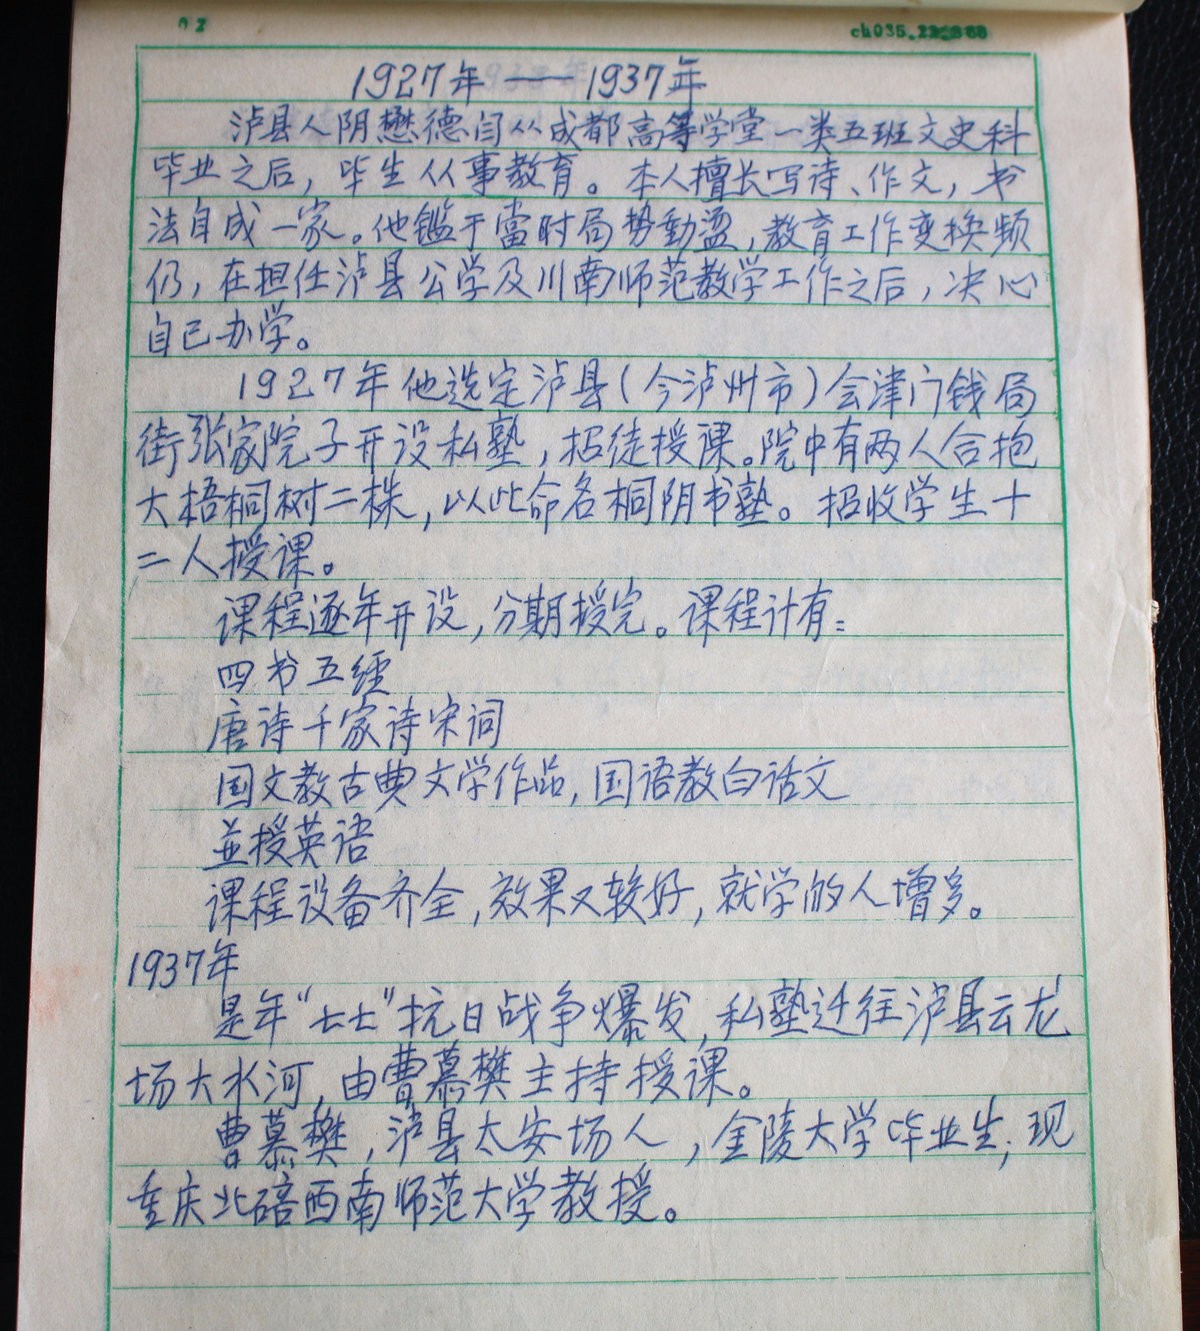 02
ch035.22
1927年——1937年
泸县人阴懋德闫从成都高等学堂一类五班文史科
毕业之后，毕生从事教育。本人擅长写诗、作文，书
法自成一家。他鑑于當时局势動盪，教育工作变换频
仍，在担任泸县公学及川南师范教学工作之后，决心
自己办学。
1927年他选定泸县（今泸州市）会津门钱局
街张家院子开设私塾，招徒授课。院中有两人合抱
大梧桐树二株，以此命名桐阴书塾。招收学生十
二人授课。
课程逐年开设，分期授完。课程计有：
四书五经
唐诗千家诗宋词
国文教古典文学作品，国语教白话文
並授英语
课程设备齐全，效果又较好，就学的人增多。
1937年
是年“七七”抗日战争爆发，私塾迁往泸县云龙
场大水河，由曹慕樊主持授课。
曹慕樊，泸县太安场人，金陵大学毕业生，现
重庆北碚西南师范大学教授。